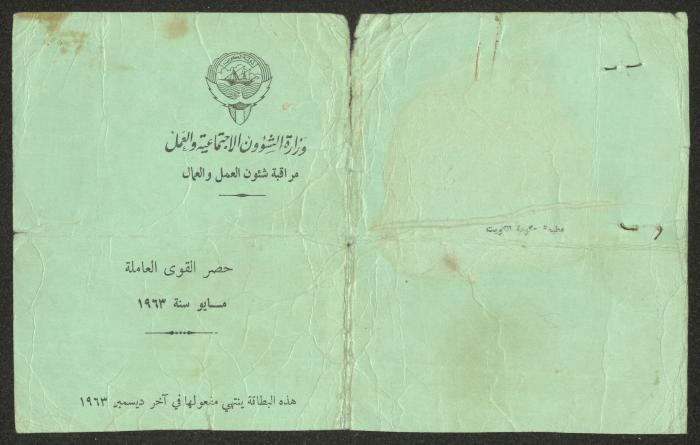 وزارة الشؤون الاجتماعية والعمل
مراقبة شئون العمل والعمال
حصر القوى العاملة
مايو سنة ١٩٦٣
هذه البطاقة ينتهي مفعولها في آخر ديسمبر ١٩٦٣
مطبعة حكومة الكويت